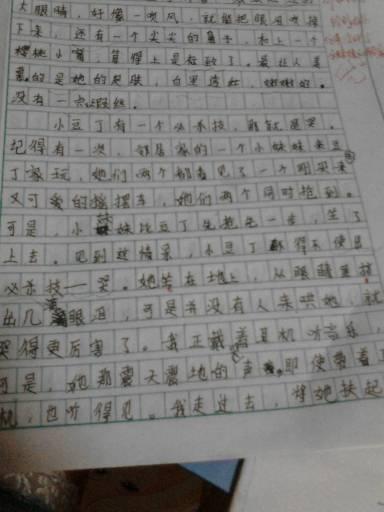 大眼睛，好像一吹风，就能把眼泪吹掉
下来，还有一个尖尖的鼻子，加上一个
樱桃小嘴，算得上是标致了。最让人羡
慕的是她的皮肤，白里透红，嫩嫩的。
没有一点瑕疵。
小豆丁有一个必杀技，那就是哭。
记得有一次，邻居家的一个小妹妹来豆
丁家玩，她们两个都看见了一个刚买来
又可爱的摇摆车，她们两个同时抢到。
可是，小妹妹比豆丁先抢先一步，坐了
上去。见到这情景，小豆丁不得不使出
必杀技——哭。她坐在地上，从眼睛里挤
出几滴眼泪，可是并没有人来哄她，就
哭得更厉害了。我正戴着耳机听音乐，
可是，她那震天震地的声，即使带着耳
机，也听得见。我走过去，将她扶起